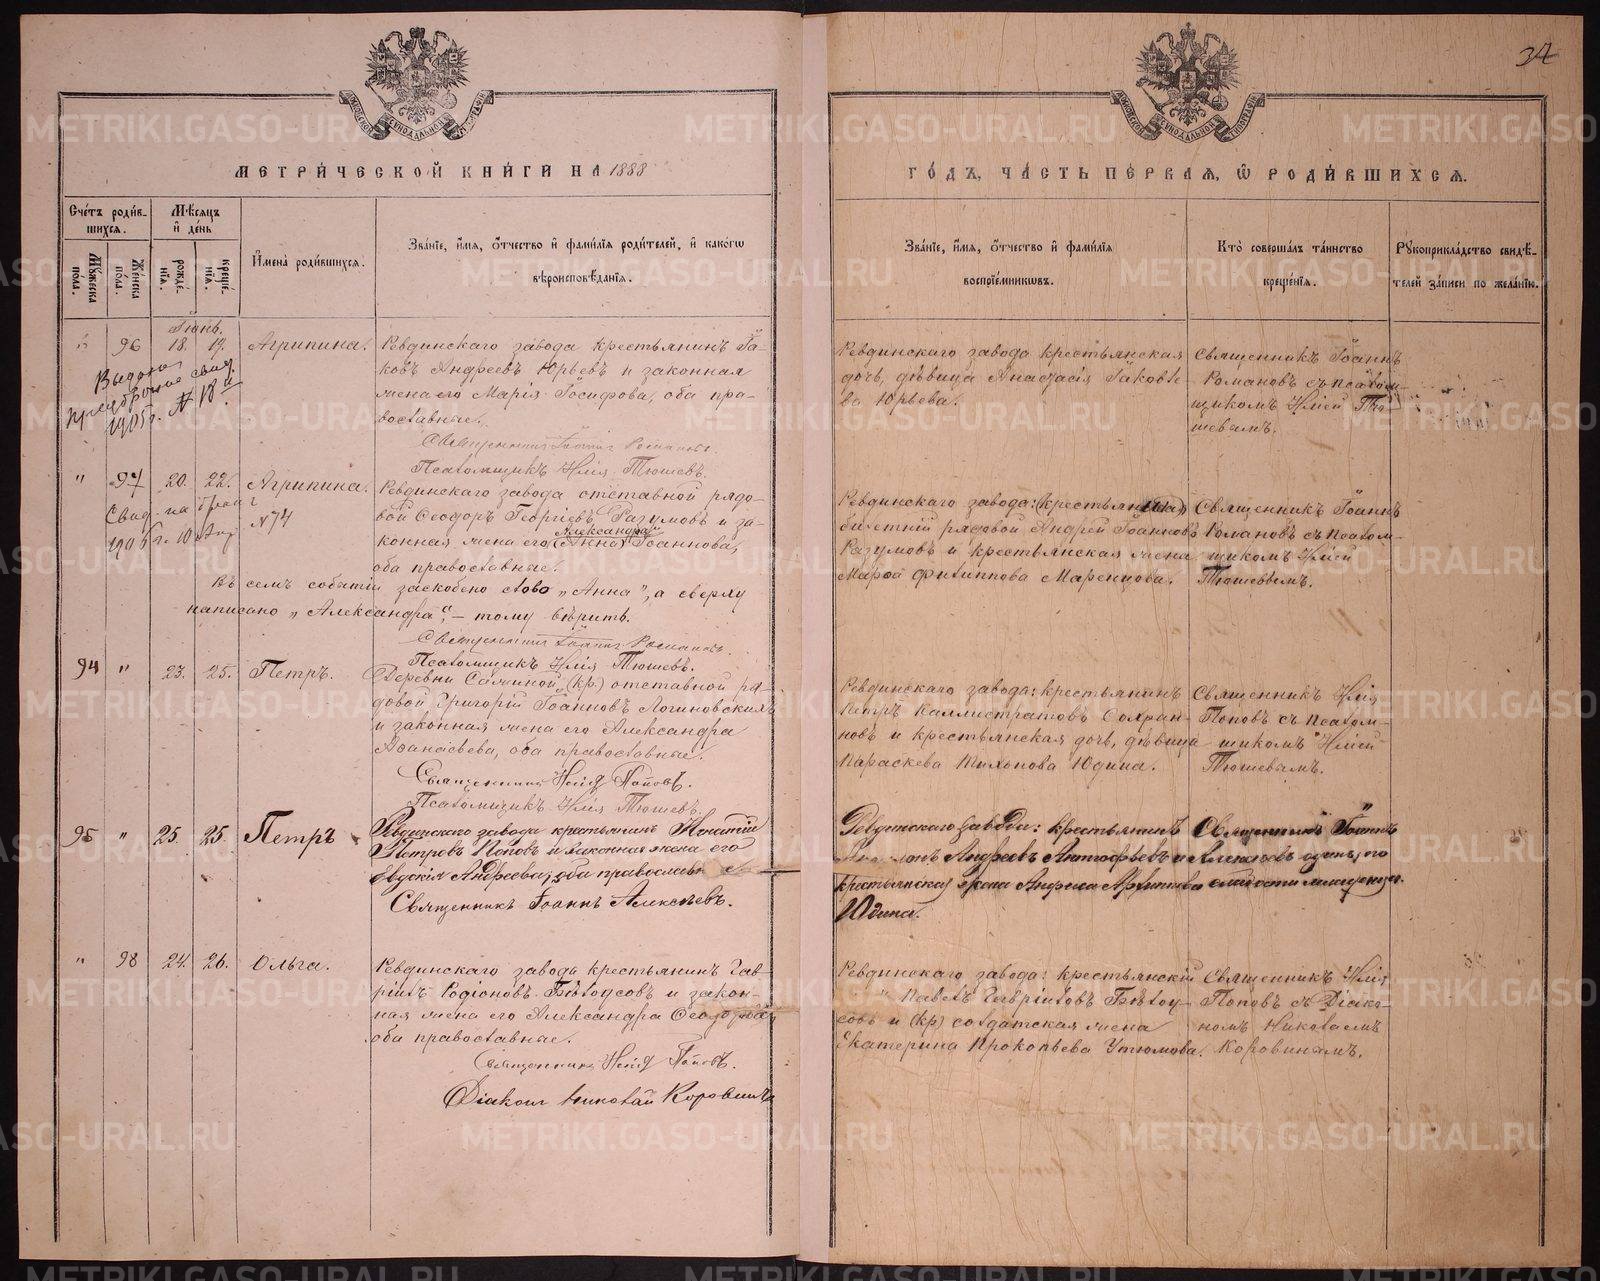 34
МЕТРИЧЕСКОЙ КНИГИ НА 1888
ГОДЪ, ЧАСТЬ ПЕРВАЯ, Ѡ РОДИВШИХСЯ.
Счетъ родив-
шихся.
Мѣсяцъ
и день
Мужеска
пола.
Женска
пола.
рожде-
нія.
креще-
нія.
Имена родившихся.
Званіе, имя, отчество и фамилія родителей, и какого
вѣроисповѣданія.
Званіе, имя, отчество и фамилія
воспріемниковъ.
Кто совершалъ таинство
крещенія.
Рукоприкладство свидѣ-
телей записи по желанію.
Іюнь.
" 96 18. 19. Агрипина.
Ревдинскаго завода крестьянинъ Іа-
ковъ Андреевъ Юрьевъ и законная
жена его Марія Іосифова, оба пра-
вославные.
Священникъ Іоаннъ Романовъ.
Псаломщикъ Илія Тюшевъ.
Ревдинскаго завода крестьянская
дочь, дѣвица Анастасія Іаковле-
ва Юрьева.
Священникъ Іоаннъ
Романовъ съ псалом-
щикомъ Иліей Тю-
шевымъ.
1905 г. № 18
" 97 20. 22. Агрипина.
Свид. на бракъ
№ 74
Ревдинскаго завода отставной рядо-
вой Ѳеодоръ Георгіевъ Разумовъ и за-
Александра
конная жена его (Анна) Іоаннова,
оба православные.
Въ семъ событіи заскоблено слово „Анна", а сверху
написано „Александра", – тому вѣрить.
Священникъ Іоаннъ Романовъ.
Псаломщикъ Илія Тюшевъ.
билетній рядовой Андрей Іоанновъ
Разумовъ и крестьянская жена
Марѳа Филиппова Маренцова.
Священникъ Іоаннъ
Романовъ съ Псалом-
щикомъ Иліей
Тюшевымъ.
94 " 23. 25. Петръ.
Деревни Саминой (кр.) отставной ря-
довой Григорій Іоанновъ Логиновскихъ
и законная жена его Александра
Аѳанасьева, оба православные.
Священникъ Илія Поповъ.
Псаломщикъ Илія Тюшевъ.
Ревдинскаго завода: крестьянинъ
Петръ Каллистратовъ Сохран-
новъ и крестьянская дочь, дѣвица
Параскева Тихонова Юдина.
Священникъ Илія
Поповъ съ Псалом-
щикомъ Иліей
Тюшевымъ.
95 " 25. 25. Петръ
Ревдинскаго завода крестьянинъ Игнатій
Петровъ Поповъ и законная жена его
Евдокія Андреева, оба православн
Священникъ Іоаннъ Алексѣевъ.
Ревдинскаго завода: крестьянинъ
Андреевъ и
крестьянская жена Анфиса Архипова
Юдина.
Священникъ Іоаннъ
Алексѣевъ одинъ, по
слабости младенца.
" 98 24. 26. Ольга.
Ревдинскаго завода крестьянинъ Гав-
ріилъ Родіоновъ Бѣлоусовъ и закон-
ная жена его Александра Ѳеодорова
оба православные.
Священникъ Илія Поповъ.
Діаконъ Николай Коровинъ
Ревдинскаго завода: крестьянскій
Павелъ Гавріиловъ Бѣлоу-
совъ и (кр) солдатская жена
Екатерина Прокопьева Утюмова.
Священникъ Илія
Поповъ съ Діако-
номъ Николаемъ
Коровинымъ.
METRIKI.GASO-URAL.RU